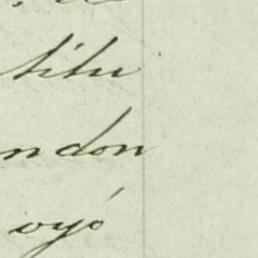 titu
ndon
oyó